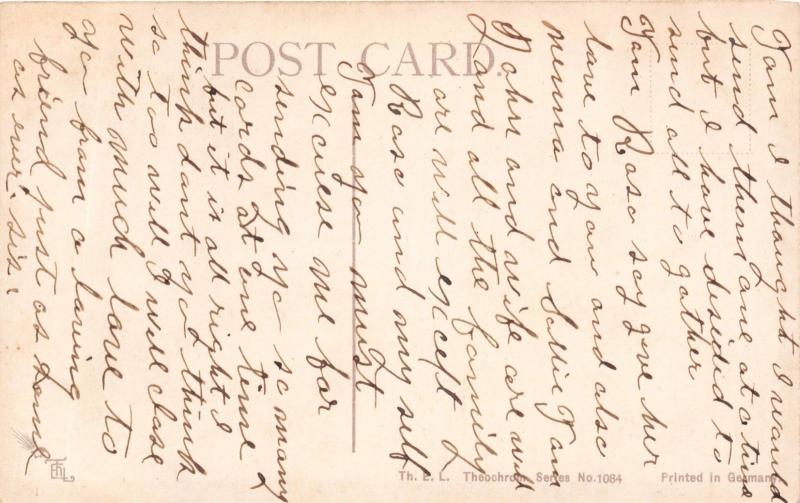 Tom I thought I would
send them one at a time
but I have desided to
send all to gather
Tom Rose say give her
love to you and also
menna and Sallie Tom
John and wife are and
and all the family
are well except
Rose and my self
Tom yo must
excuse me for
sending yo so many
cards at one time
but it is all right I
think dont yo think
so too well I will close
with much love to
yo from a loving
friend just as some
as ever sis.
POST CARD.
Th. E. L. Theochrom Series No. 1084
Printed in Germany.